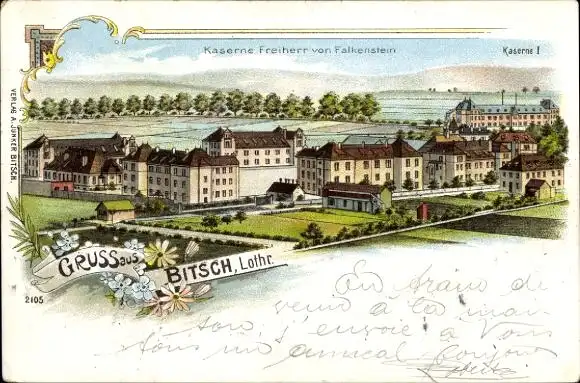 Kaserne Freiherr von Falkenstein
Kaserne I
VERLAG A. JUNKER BITSCH.
GRUSS aus
BITSCH, Lothr.
2105
En train de
venir à la
j'envoie à Vous
tous un amical bonjour